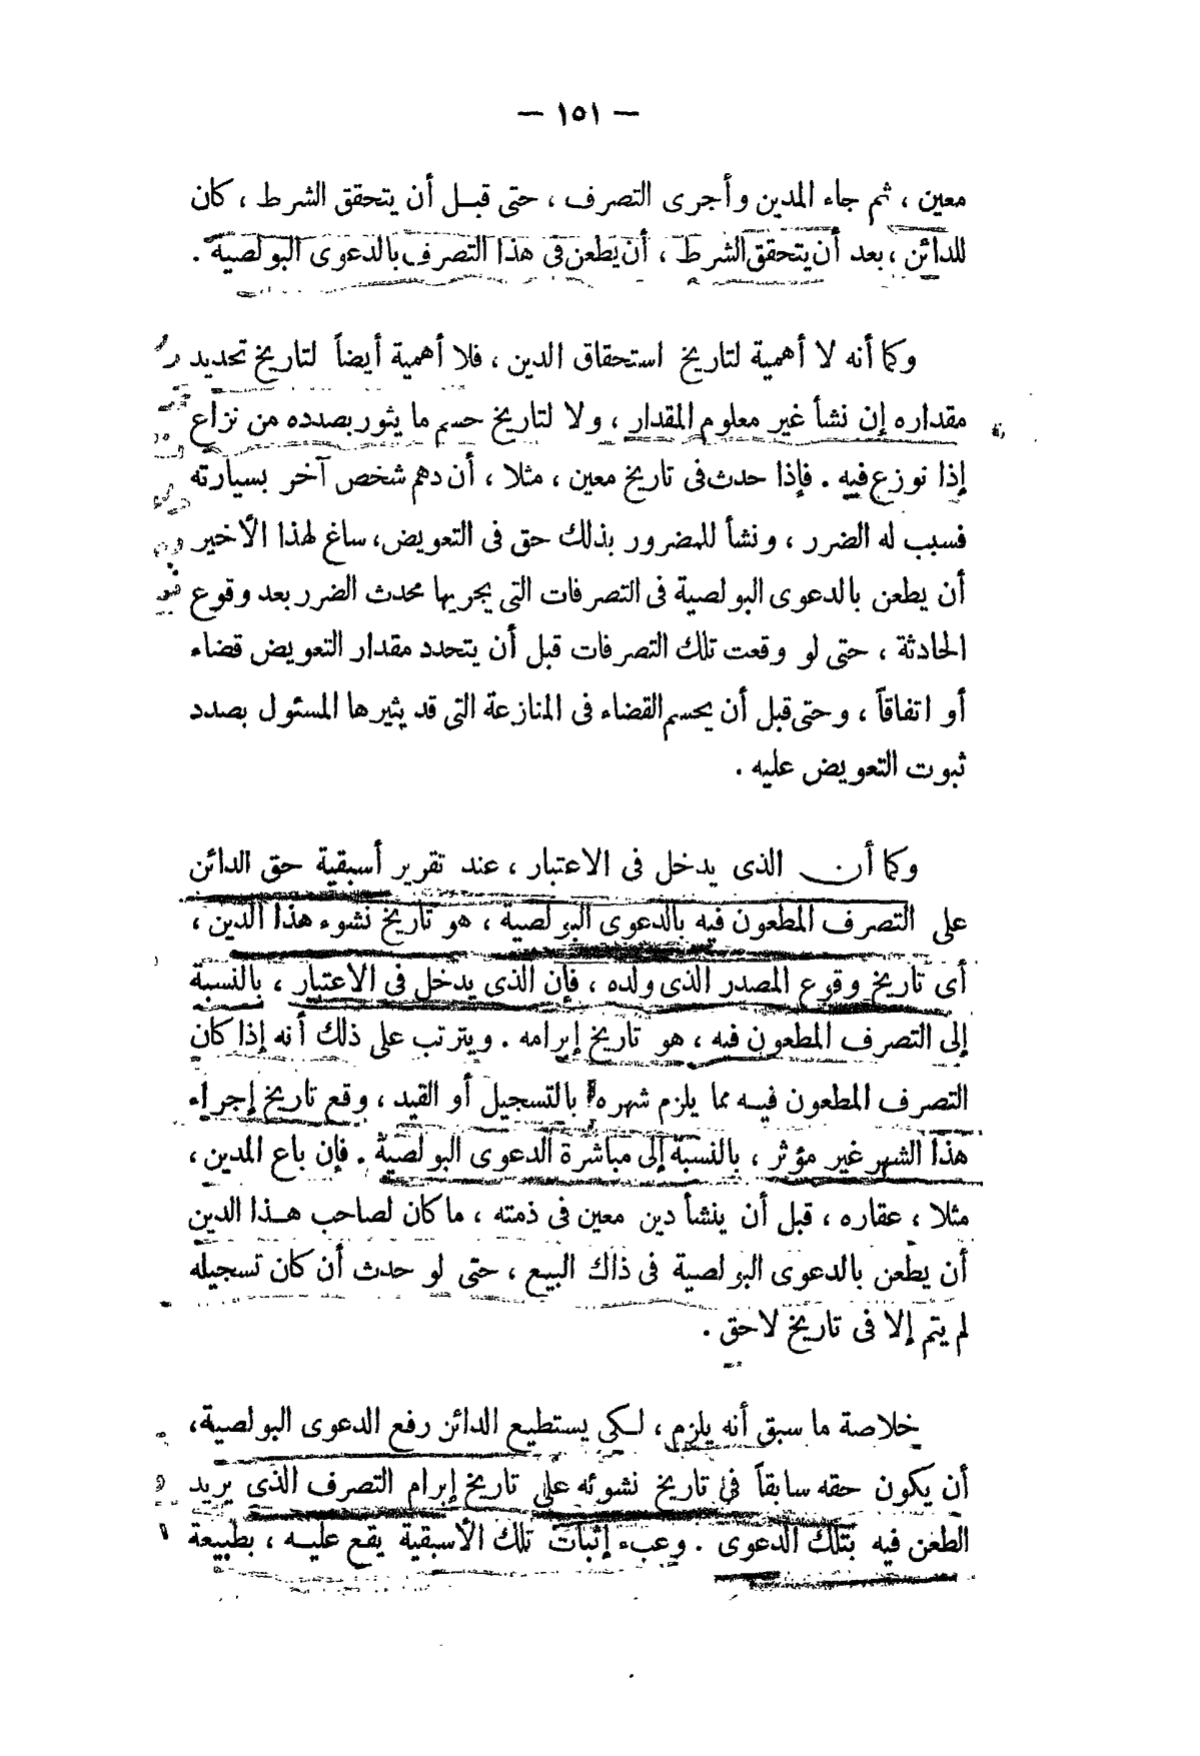 — ١٥١ —
معين ، ثم جاء المدين وأجرى التصرف ، حتى قبــل أن يتحقق الشرط ، كان
للدائن ، بعد أن يتحقق الشرط ، أن يطعن فى هذا التصرف بالدعوى البولصية .
وكما أنه لا أهمية لتاريخ استحقاق الدين ، فلا أهمية أيضاً لتاريخ تحديد
مقداره إن نشأ غير معلوم المقدار ، ولا لتاريخ حسم ما يثور بصدده من نزاع
إذا نوزع فيه . فإذا حدث فى تاريخ معين ، مثلا ، أن دهم شخص آخر بسيارته
فسبب له الضرر ، ونشأ للمضرور بذلك حق فى التعويض، ساغ لهذا الأخير
أن يطعن بالدعوى البولصية فى التصرفات التى يجريها محدث الضرر بعد وقوع
الحادثة ، حتى لو وقعت تلك التصرفات قبل أن يتحدد مقدار التعويض قضاء
أو اتفاقاً ، وحتى قبل أن يحسم القضاء فى المنازعة التى قد يثيرها المسئول بصدد
ثبوت التعويض عليه .
وكما أن الذى يدخل فى الاعتبار ، عند تقرير أسبقية حق الدائن
على التصرف المطعون فيه بالدعوى البولصية ، هو تاريخ نشوء هذا الدين ،
أى تاريخ وقوع المصدر الذى ولده ، فإن الذى يدخل فى الاعتبار ، بالنسبة
إلى التصرف المطعون فيه ، هو تاريخ إبرامه . ويترتب على ذلك أنه إذا كان
التصرف المطعون فيــه مما يلزم شهره بالتسجيل أو القيد ، وقع تاريخ إجراء
هذا الشهر غير مؤثر ، بالنسبة إلى مباشرة الدعوى البولصية . فإن باع المدين ،
مثلا ، عقاره ، قبل أن ينشأ دين معين فى ذمته ، ما كان لصاحب هــذا الدين
أن يطعن بالدعوى البولصية فى ذاك البيع ، حتى لو حدث أن كان تسجيله
لم يتم إلا فى تاريخ لاحق .
خلاصة ما سبق أنه يلزم ، لــكى يستطيع الدائن رفع الدعوى البولصية،
أن يكون حقه سابقاً فى تاريخ نشوئه على تاريخ إبرام التصرف الذى يريد
الطعن فيه بتلك الدعوى . وعبء إثبات تلك الأسبقية يقع عليــه ، بطبيعة